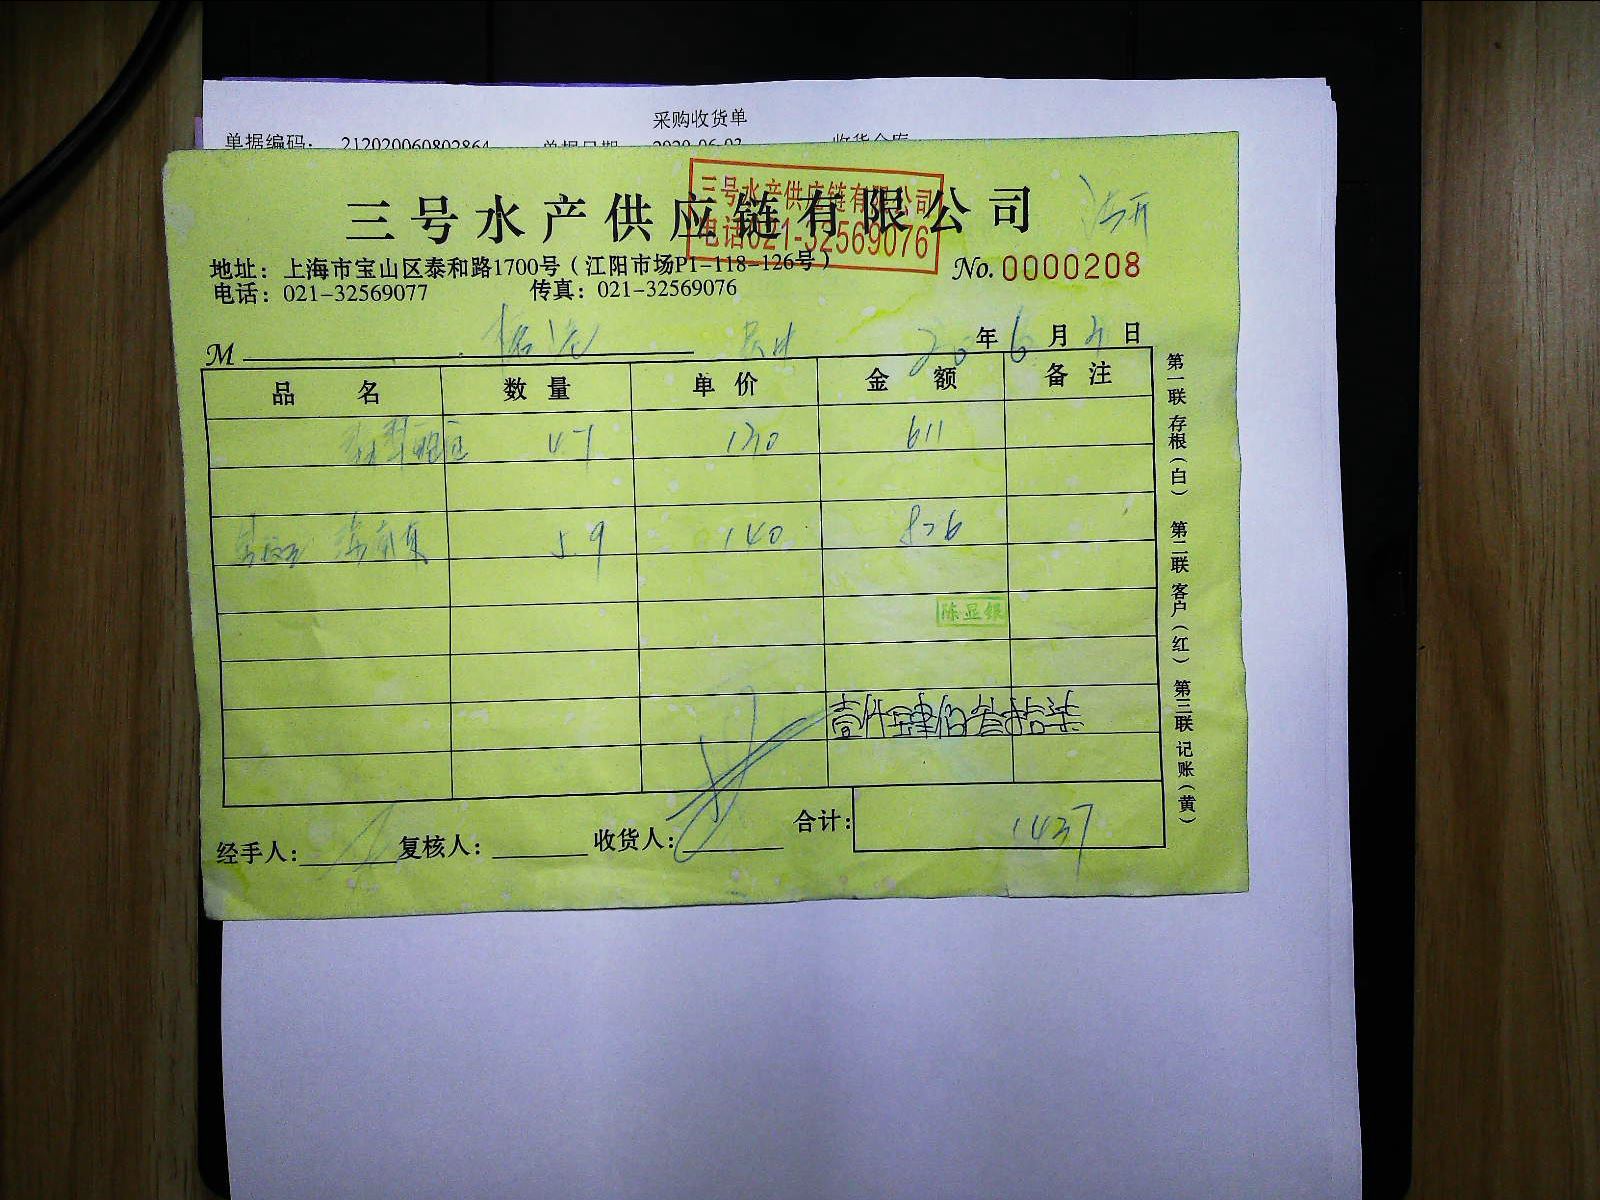 采购收货单
单据编码： 212020060802864 单据日期 2020-06-03 收货仓库
三号水产供应链有限公司
三号水产供应链有限公司
电话021-32569076
地址：上海市宝山区泰和路1700号（江阳市场P1-118-126号）
No. 0000208
电话：021-32569077 传真：021-32569076
M
20年6月 日
品名 数量 单价 金额 备注
4.7 130 611
5.9 140 826
陈显银
壹仟肆佰叁拾柒
合计： 1437
经手人： 复核人： 收货人：
第一联存根（白） 第二联客户（红） 第三联记账（黄）